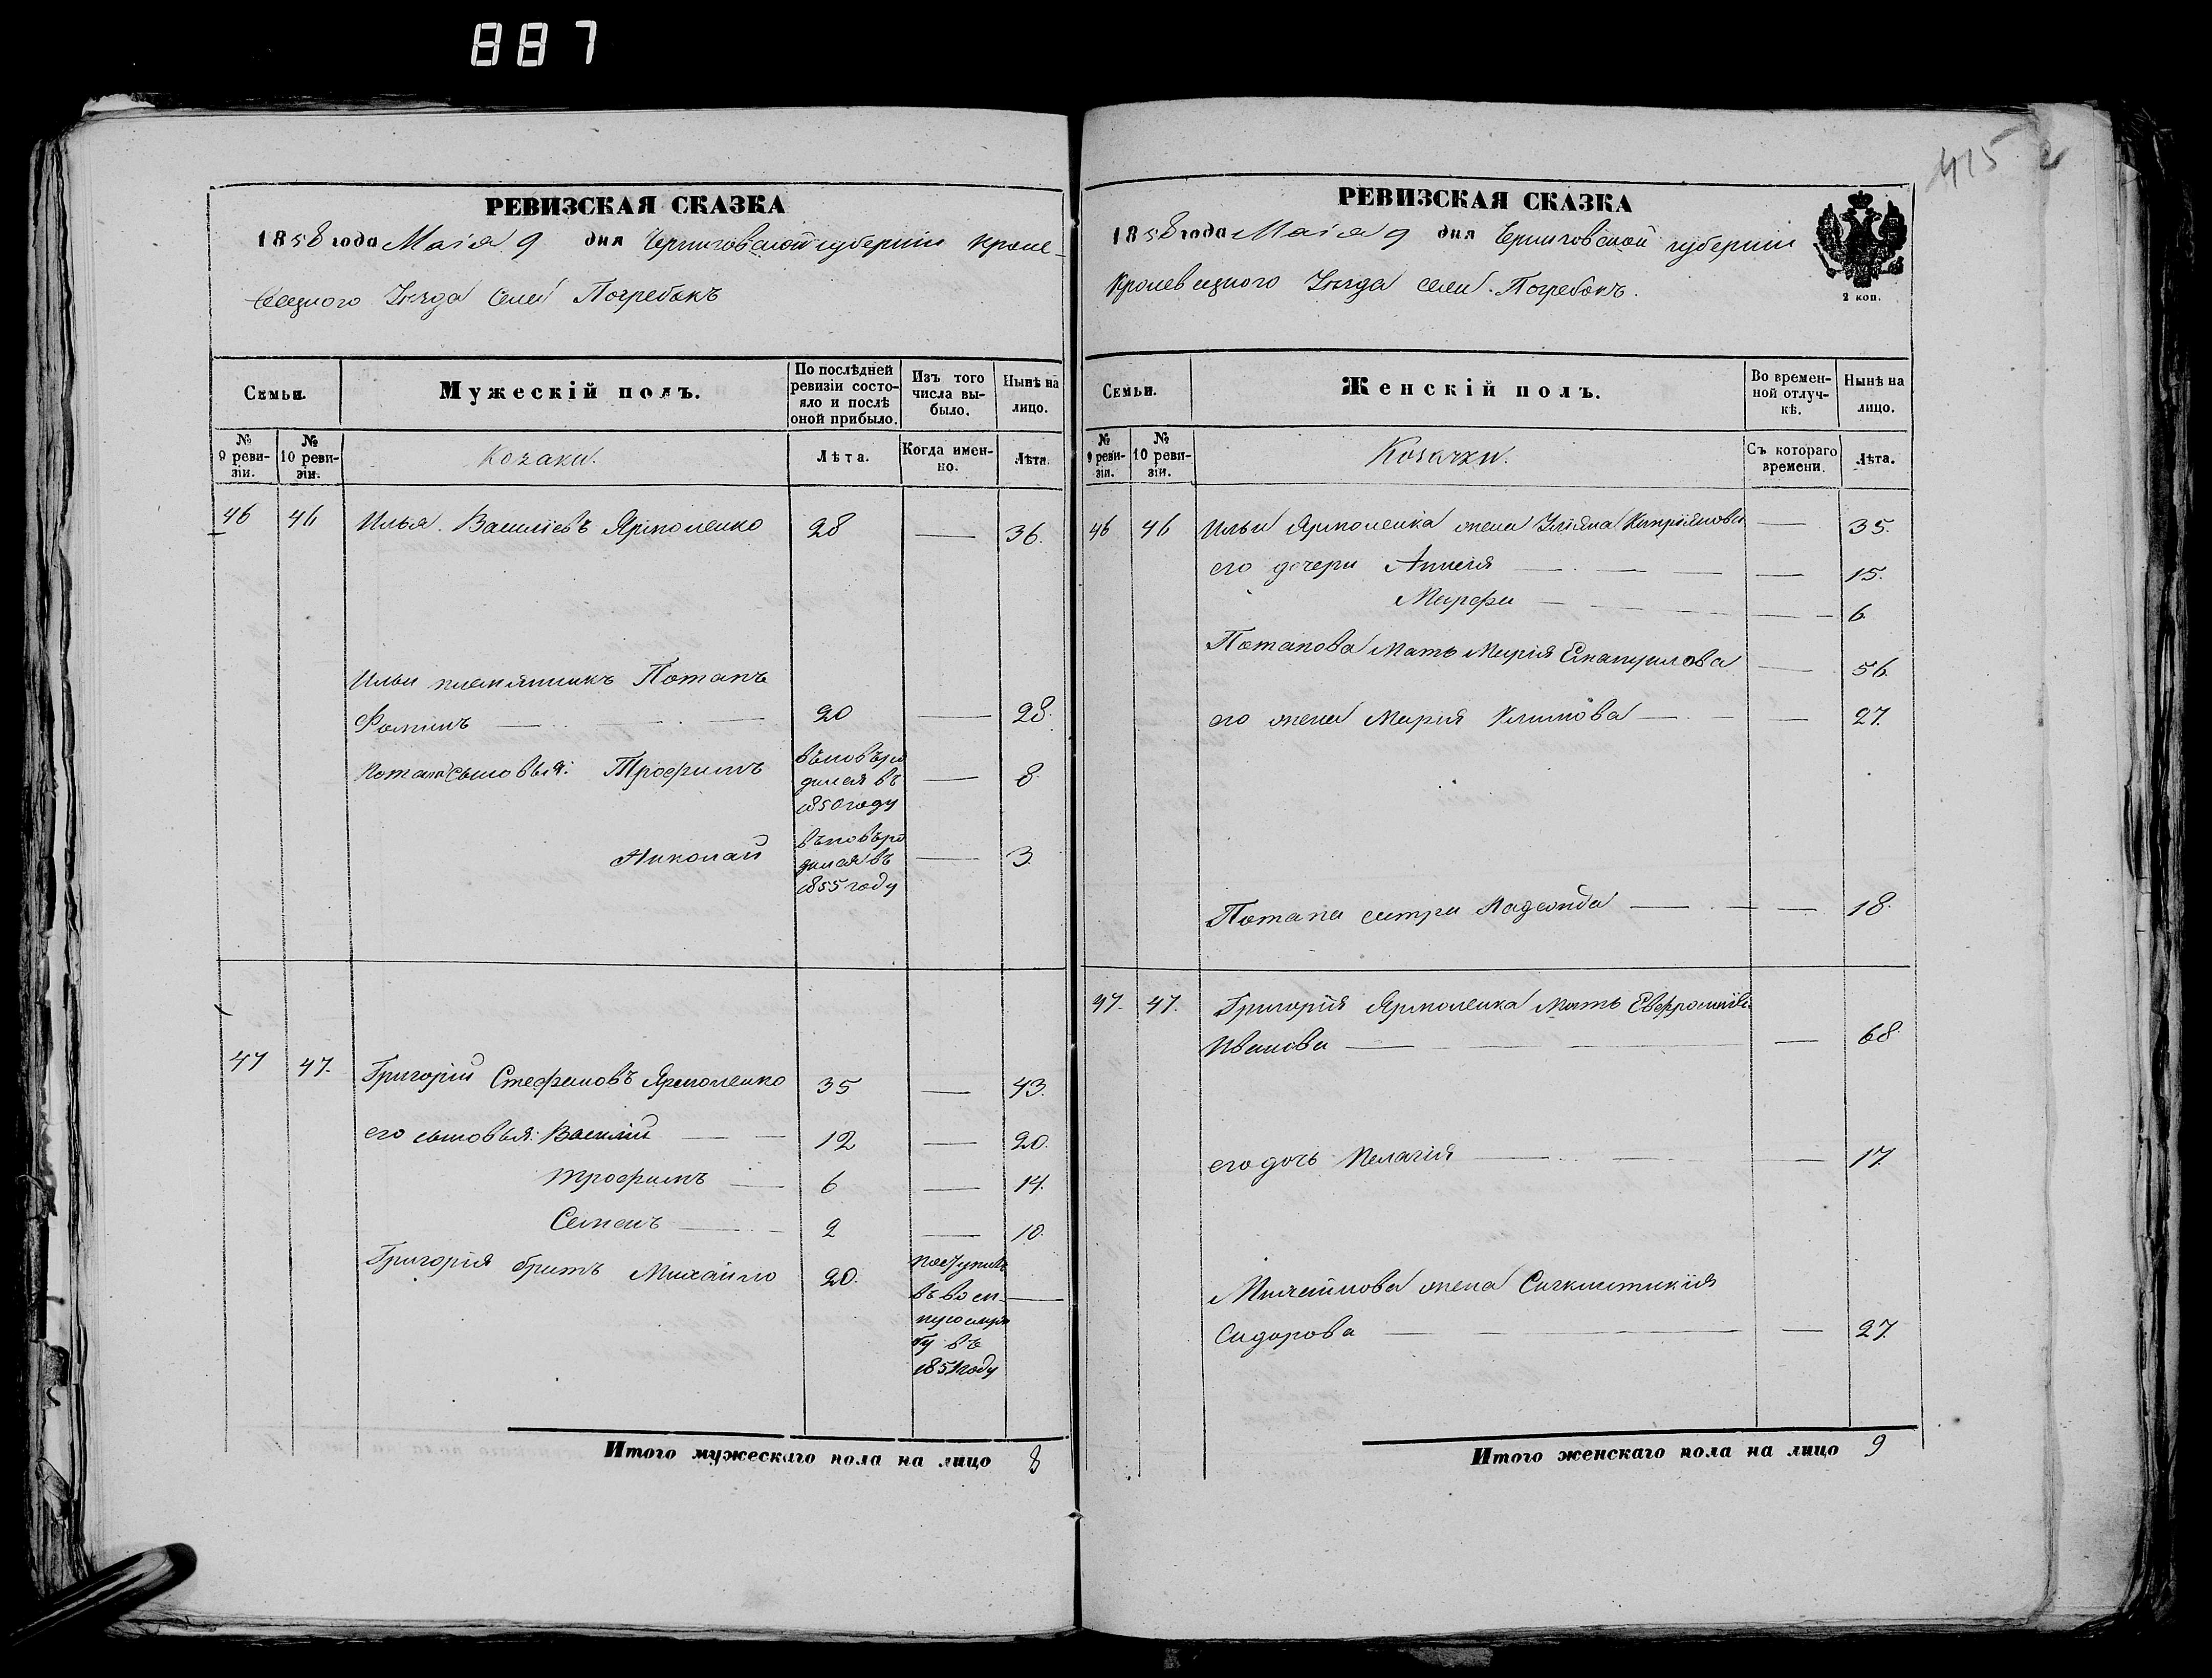 887
415
РЕВИЗСКАЯ СКАЗКА
1858 года Маія 9 дня Черниговской губерніи Кроле-
вецкого Уѣзда села Погребокъ
Семьи.
Мужескій полъ.
По послѣдней ревизіи состояло и послѣ оной прибыло.
Изъ того числа выбыло.
Нынѣ на лицо.
№ 9 ревизіи.
№ 10 ревизіи.
Козаки.
Лѣта.
Когда именно.
Лѣта.
46 46 Илья Васильевъ Ярмоленко 28 — 36.
Ильи племянникъ Потапъ
Фоминъ — 20 — 28.
Потапа сыновья: Трофимъ — 8.
вновь ро
дился въ
1850 году
Николай — 3.
вновь ро
дился въ
1855 году
47 47. Григорій Стефановъ Ярмоленко 35 — 43.
его сыновья: Василій — 12 — 20.
Трофимъ — 6 — 14.
Семенъ — 2 — 10.
Григорія братъ Михайло 20. —
поступилъ
въ воен-
ную служ
бу въ
1851 году
Итого мужескаго пола на лицо 8
РЕВИЗСКАЯ СКАЗКА
1858 года Маія 9 дня Черниговской губерніи
Кролевецкого Уѣзда села Погребокъ.
2 коп.
Семьи.
Женскій полъ.
Во временной отлучкѣ.
Нынѣ на лицо.
№ 9 ревизіи.
№ 10 ревизіи.
Козачки.
Съ котораго времени.
Лѣта.
46 46 Ильи Ярмоленка жена Уліяна Кипріянова — 35.
его дочери — 15.
Марфа — 6.
Потапова мать Марія Емануилова — 56.
его жена Марія Климова — 27.
Потапа сестра Надежда — 18.
47. 47. Григорія Ярмоленка мать Евфросинія
Иванова — 68
его дочь Пелагія — 17.
Михайлова жена Синклитикія
Сидорова — 27.
Итого женскаго пола на лицо 9